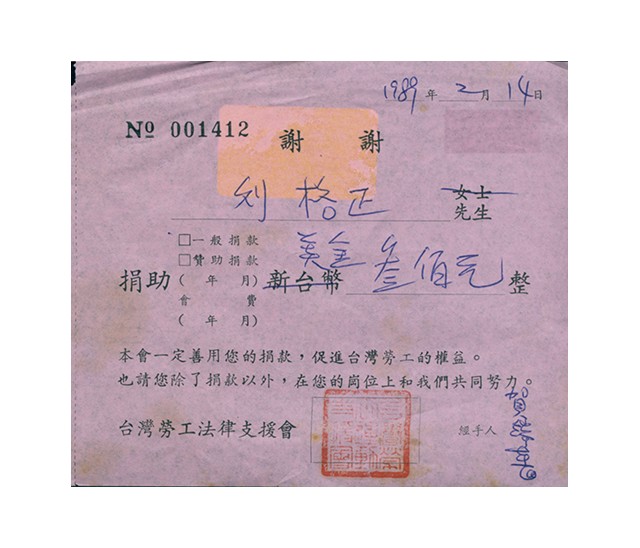 1989年2月14日
№ 001412 謝 謝
刘格正 女士
先生
□一般捐款
□贊助捐款
捐助 ( 年 月) 新台幣 美金叁佰元 整
會 費
( 年 月)
本會一定善用您的捐款,促進台灣勞工的權益。
也請您除了捐款以外,在您的崗位上和我們共同努力。
台灣勞工法律支援會 經手人